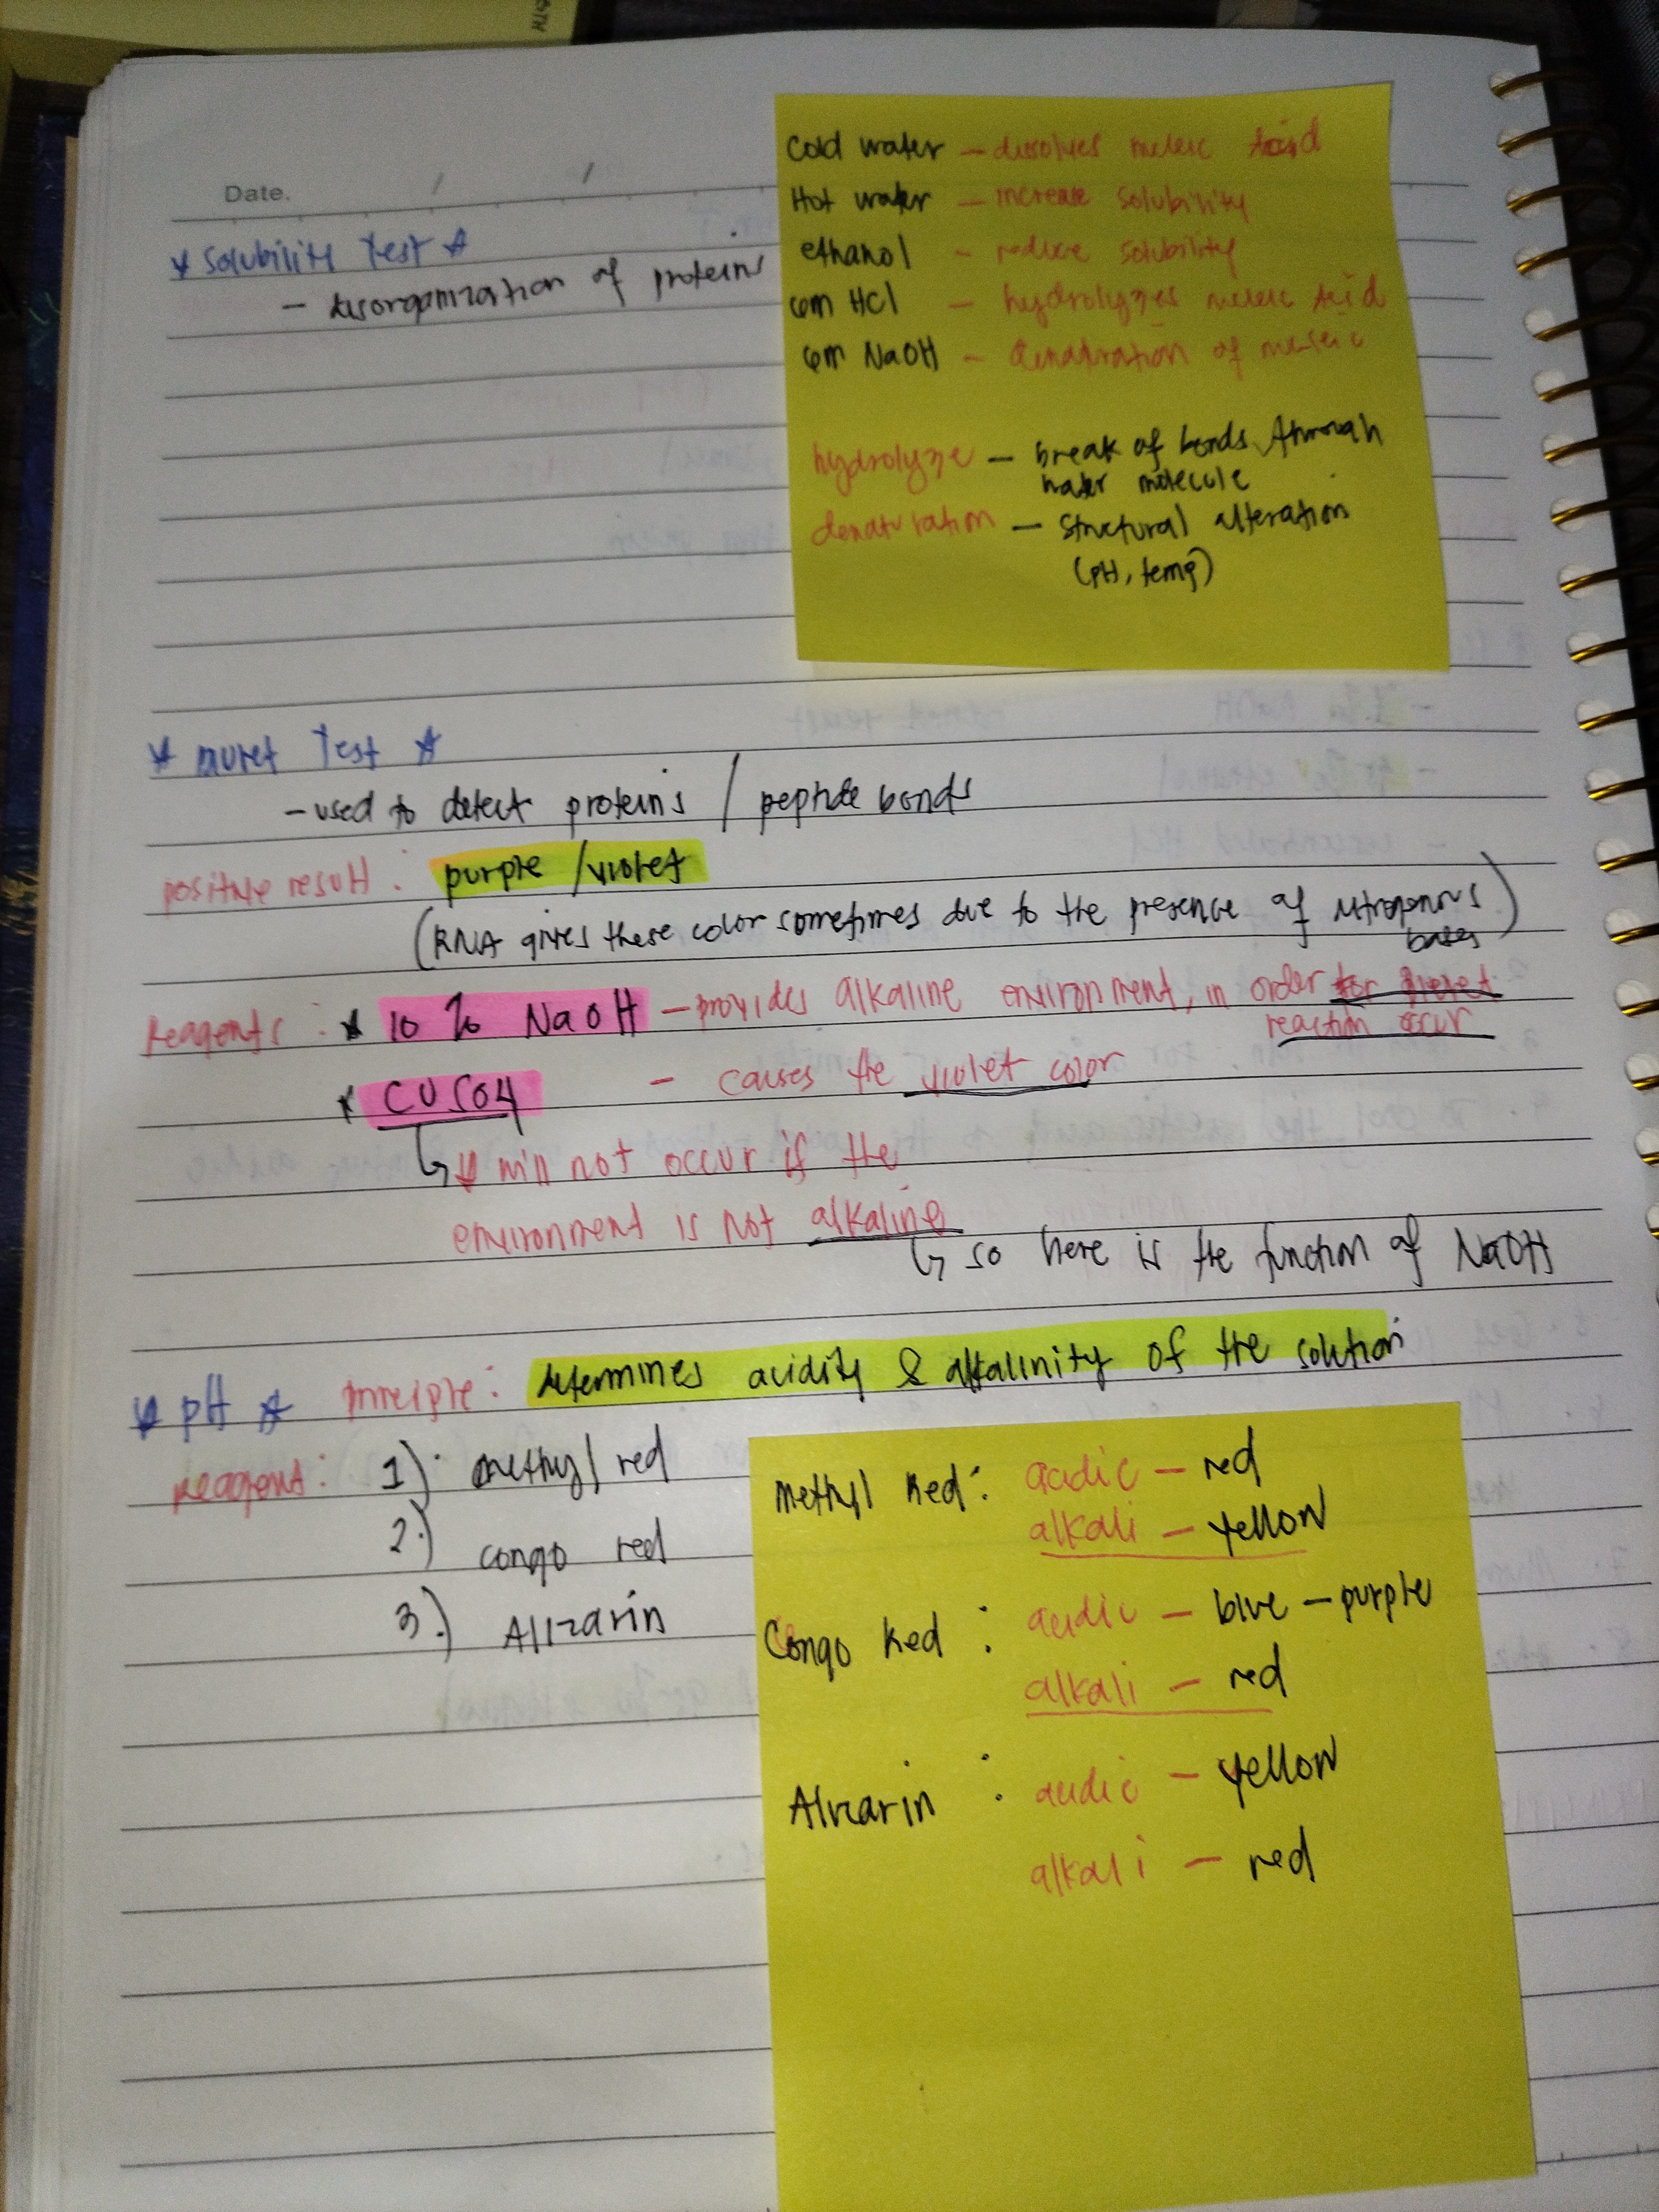 Date. / /
* Solubility Test *
- disorganization of proteins
Cold water - dissolves nucleic Acid
Hot water - increase solubility
ethanol - reduce solubility
6m HCl - hydrolyzes nucleic Acid
6m NaOH - denaturation of nucleic
hydrolyze - break of bonds through
water molecule
denaturation - structural alteration
(pH, temp)
* Biuret Test *
- used to detect proteins / peptide bonds
positive result : purple / violet
(RNA gives these color sometimes due to the presence of nitrogenous
bases)
Reagents : * 10 % NaOH - provides alkaline environment, in order for biuret
reaction occur
* CUSO4 - causes the violet color
↳ * will not occur if the
environment is not alkaline
↳ so here is the function of NaOH
* pH * Principle : determines acidity & alkalinity of the solution
Reagent : 1) methyl red
2.) congo red
3.) Alizarin
Methyl Red : acidic - red
alkali - yellow
Congo Red : acidic - blue - purple
alkali - red
Alizarin : acidic - yellow
alkali - red